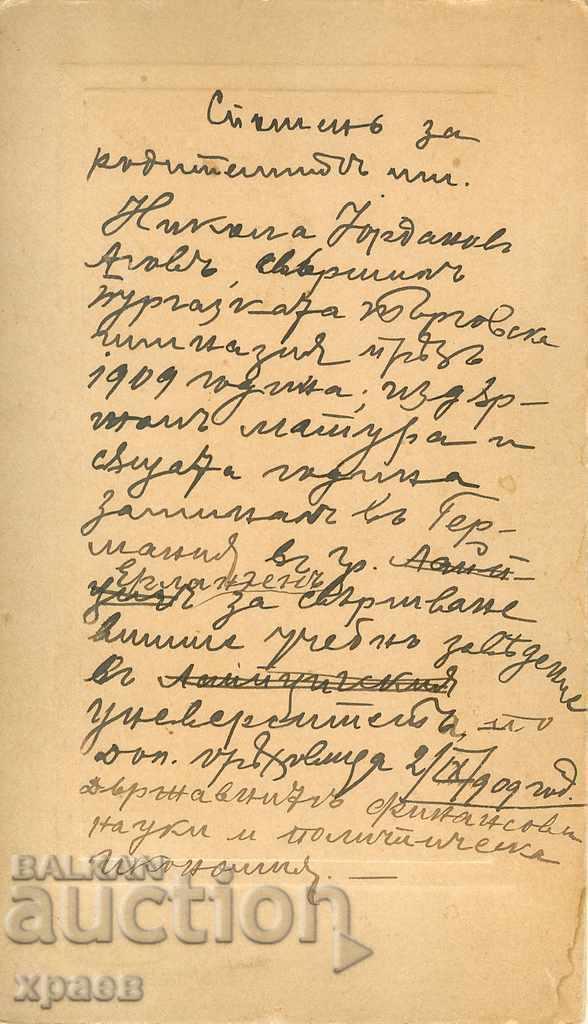 Споменъ за
родителитѣ ми.
Никола Йорданов
Аговъ, свършилъ
Бургазката Търговска
гимназия прѣзъ
1909 година; издър-
жалъ матура и
същата година
заминалъ въ Гер-
мания въ гр. Лайп-
Ерлангенъ
цигъ за свършване
висше учебно заведение
въ Лайпцигския
университетъ, по
Държавнитѣ финансови
науки и политическа
икономия. —
Гор. Орѣховица 2/IX 1909 год.
BALKAN
auction
храев